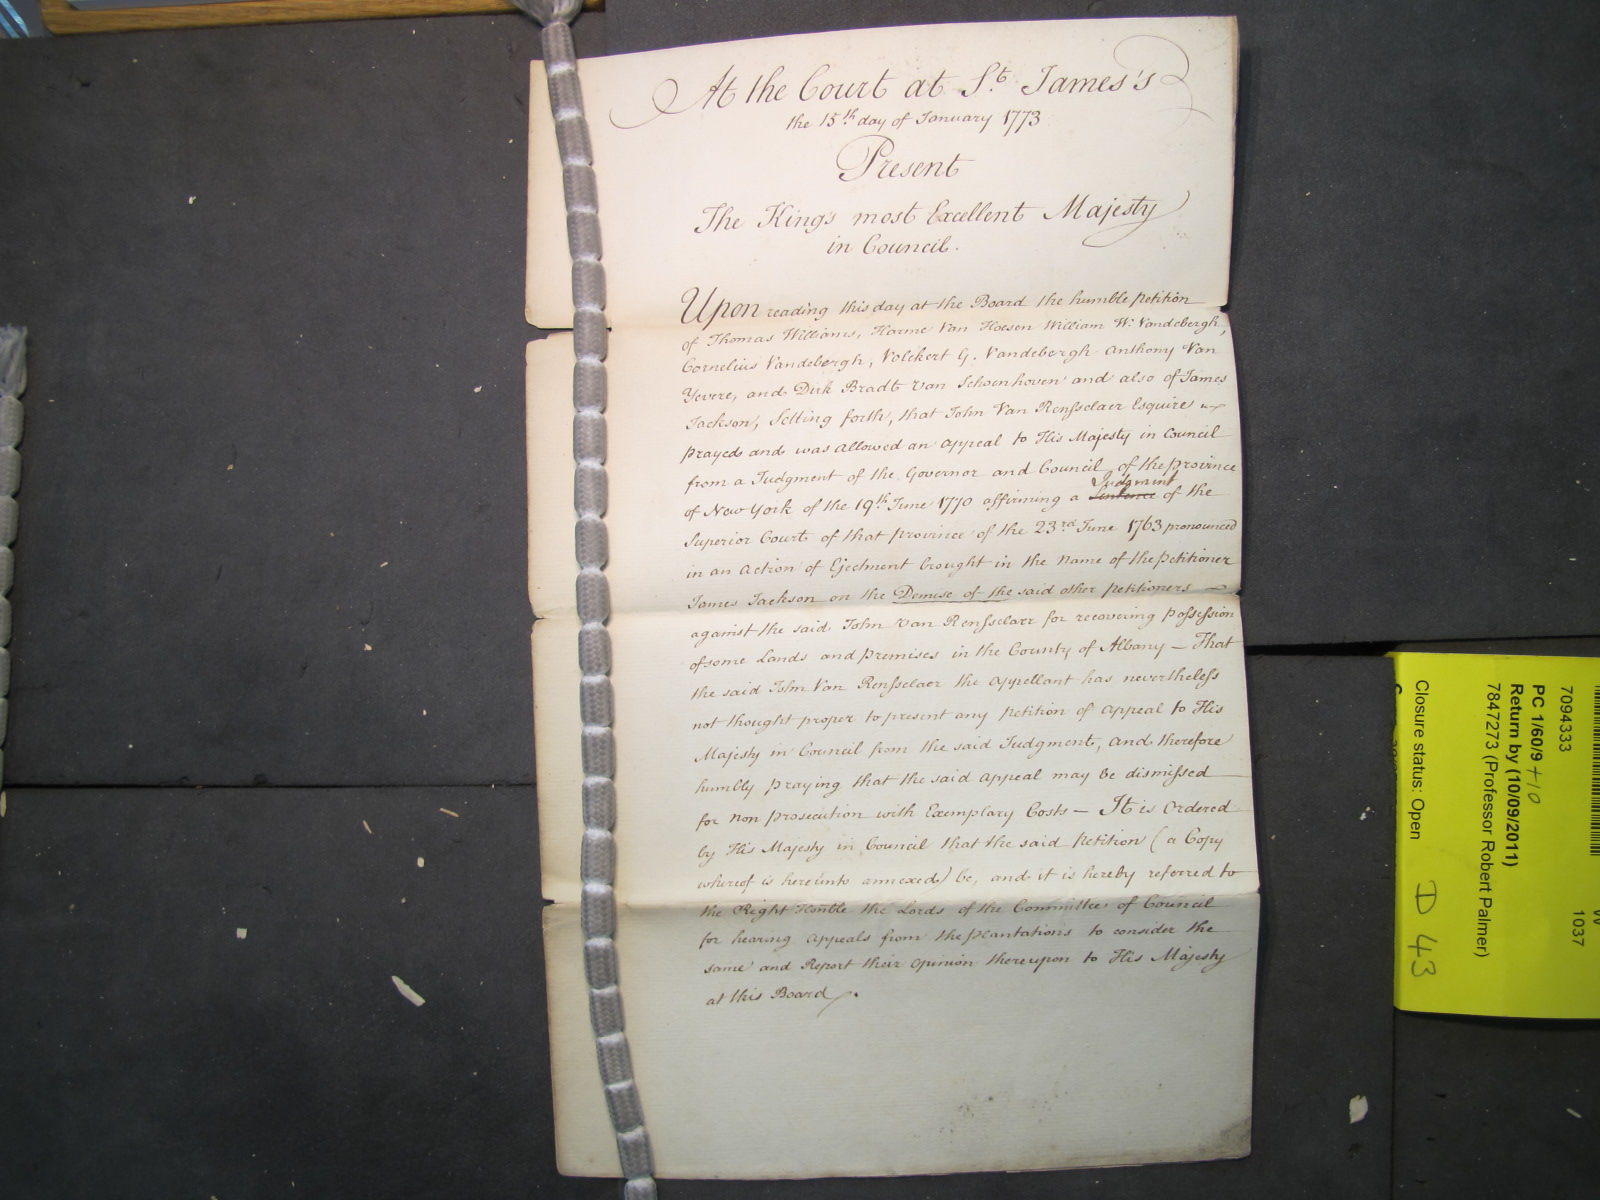 At the Court at St. James's
the 15th day of January 1773
Present
The King's most Excellent Majesty
in Council.
Upon reading this day at the Board the humble Petition
of Thomas Williams, Harme Van Hoesen William W. Vandebergh,
Cornelius Vandebergh, Volckert G. Vandebergh Anthony Van
Yevere, and Dirk Bradt Van Schoenhoven and also of James
Jackson, Setting forth, that John Van Renssselaer Esquire
prayed and was allowed an appeal to His Majesty in Council
from a Judgment of the Governor and Council of the province
of New York of the 19th June 1770 affirming a Sentence Judgment of the
Superior Court of that province of the 23rd June 1763 pronounced
in an Action of Ejectment brought in the Name of the Petitioner
James Jackson on the Demise of the said other petitioners
against the said John Van Rensselaer for recovering possession
of some Lands and premises in the County of Albany — That
the said John Van Rensselaer the appellant has nevertheless
not thought proper to present any Petition of Appeal to His
Majesty in Council from the said Judgment, and therefore
humbly praying that the said appeal may be dismissed
for non prosecution with Exemplary Costs — It is Ordered
by His Majesty in Council that the said Petition (a Copy
whereof is hereunto annexed) be, and it is hereby referred to
the Right Honble the Lords of the Committee of Council
for hearing appeals from the plantations to consider the
same and Report their opinion thereupon to His Majesty
at this Board.
7094333
PC 1/60/9 +10
Return by (10/09/2011)
7847273 (Professor Robert Palmer)
Closure status: Open
1037
D 43